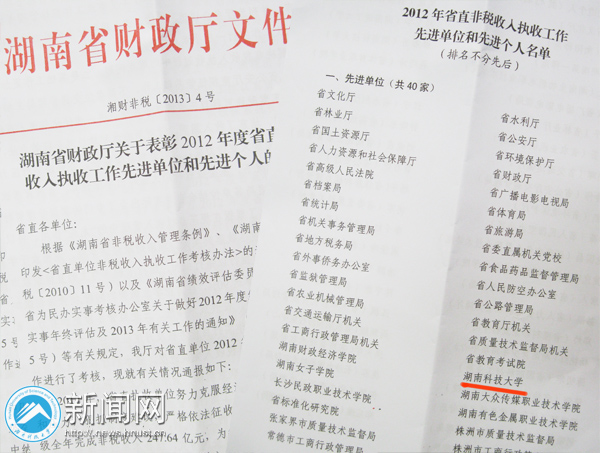 湖南省财政厅文件
湘财非税〔2013〕4号
湖南省财政厅关于表彰2012年度省直
收入执收工作先进单位和先进个人的
省直各单位：
根据《湖南省非税收入管理条例》、《湖南
印发<省直单位非税收入执收工作考核办法>的
税〔2010〕11号）以及《湖南省绩效评估委员
省为民办实事考核办公室关于做好2012年度
实事年终评估及2013年有关工作的通知》
5号）等有关规定，我厅对省直单位2012年
作进行了考核，现就有关情况通报如下：
单位努力克服经
严格依法征收
级全年完成非税收入247.64亿元，为
2012年省直非税收入执收工作
先进单位和先进个人名单
（排名不分先后）
一、先进单位（共40家）
省文化厅
省林业厅
省国土资源厅
省人力资源和社会保障厅
省高级人民法院
省档案局
省统计局
省机关事务管理局
省地方税务局
省外事侨务办公室
省监狱管理局
省农业机械管理局
省交通运输厅机关
省工商行政管理局机关
湖南财政经济学院
湖南女子学院
长沙民政职业技术学院
省标准化研究院
张家界市质量技术监督局
常德市工商行政管理局
省水利厅
省公安厅
省环境保护厅
省财政厅
省广播电影电视局
省体育局
省旅游局
省委直属机关党校
省食品药品监督管理局
省人民防空办公室
省公路管理局
省教育厅机关
省质量技术监督局机关
省教育考试院
湖南科技大学
湖南大众传媒职业技术学院
湖南有色金属职业技术学院
株洲市质量技术监督局
株洲市工商行政管理局
新闻网